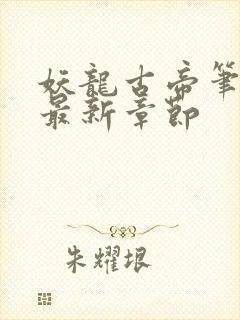 妖龍古帝筆
最新章節
朱耀垠